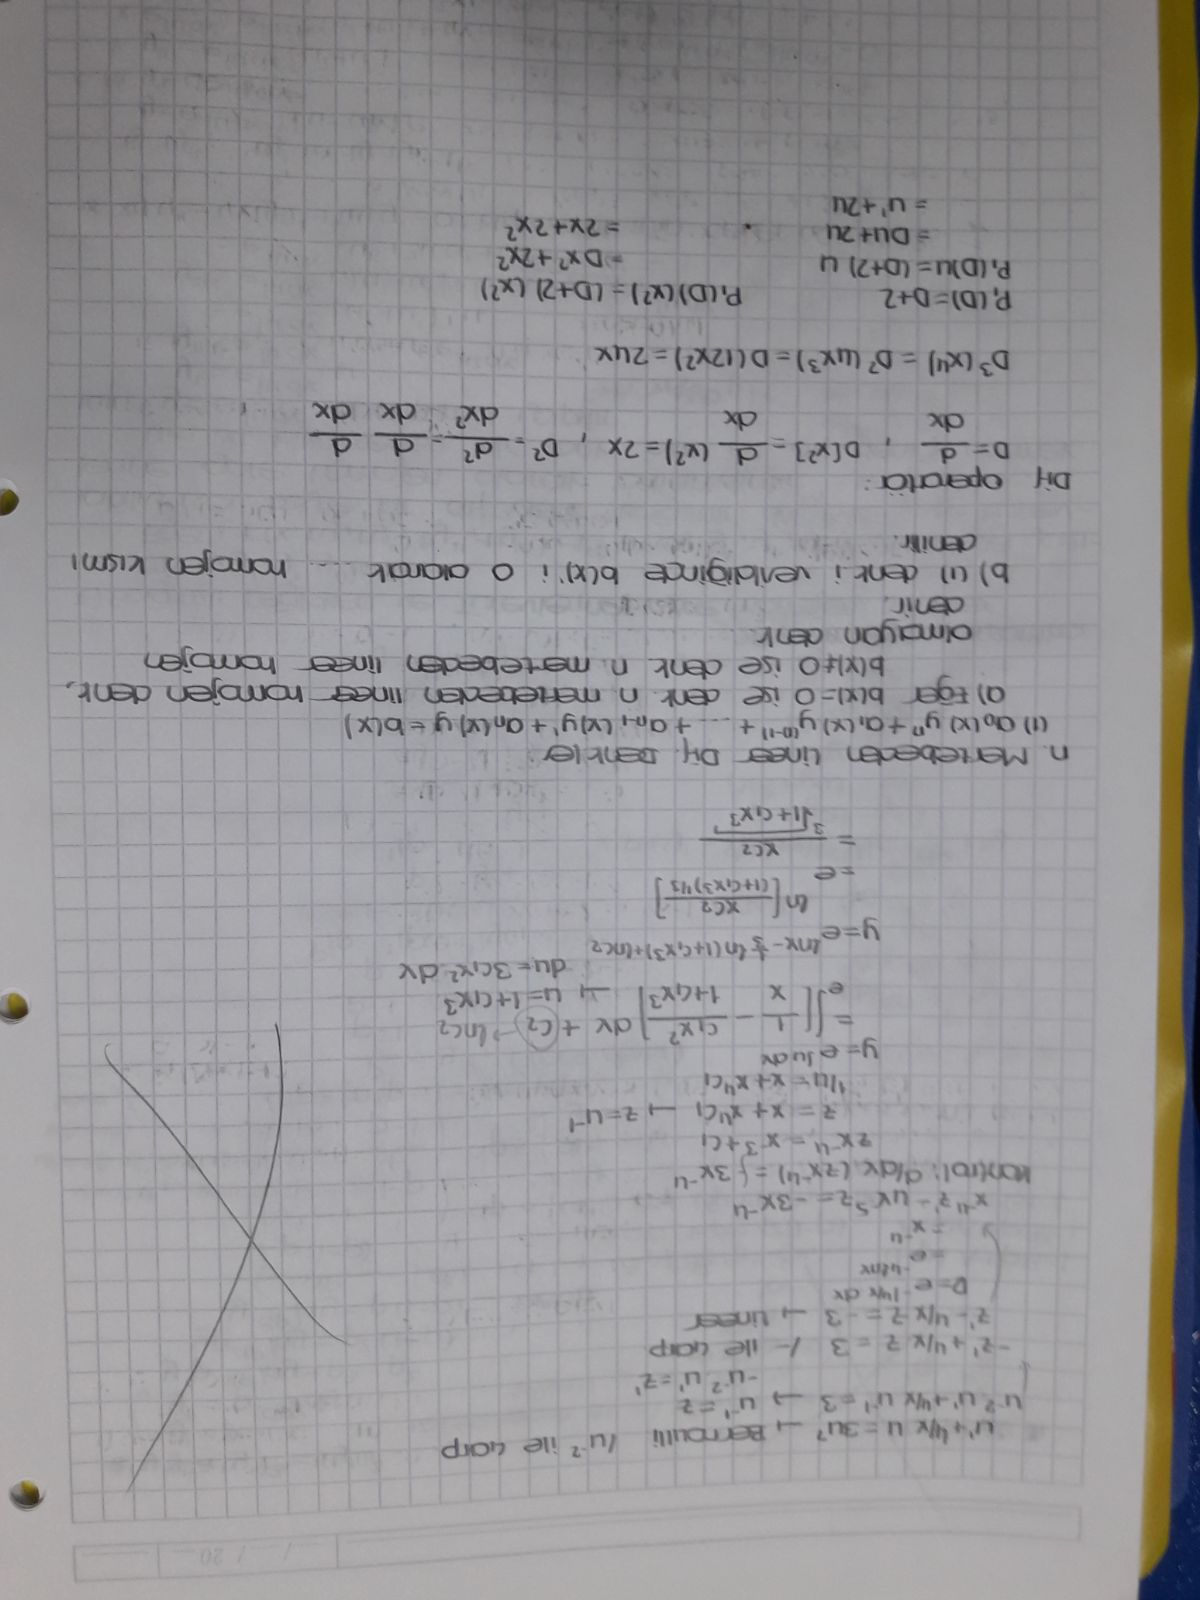 / / 20
u' + 4/x u = 3u² → Bernoulli /u⁻² ile çarp
u⁻² u' + 4/x u⁻¹ = 3 → u⁻¹ = z
-u⁻² u' = z'
-z' + 4/x z = 3 /- ile çarp
z' - 4/x z = -3 → Lineer
D = e^(-∫4/x dx)
= e^(-4lnx)
= x⁻⁴
x⁻⁴ z' - 4x⁵ z = -3x⁻⁴
Kontrol: d/dx (zx⁻⁴) = ∫ 3x⁻⁴
zx⁻⁴ = x³ + c₁
z = x + x⁴c₁ → z = u⁻¹
1/u = x + x⁴c₁
y = e^(∫u dx)
= e^(∫[1/x - c₁x²/(1+c₁x³)] dx + c₂) → lnc₂
→ u = 1+c₁x³
du = 3c₁x² dx
y = e^(lnx - 1/3 ln(1+c₁x³) + lnc₂)
= e^(ln[xc₂/(1+c₁x³)^(1/3)])
= xc₂/∛(1+c₁x³)
n. Mertebeden Lineer Dif. Denkler:
(1) a₀(x) yⁿ + a₁(x) y⁽ⁿ⁻¹⁾ + ... + aₙ₋₁(x)y' + aₙ(x)y = b(x)
a) Eğer b(x)=0 ise denk n. mertebeden lineer homojen denk,
b(x)≠0 ise denk n. mertebeden lineer homojen
olmayan denk.
denir.
b) (1) denk.i verildiğinde b(x)'i 0 alarak .... homojen kısmı
denilir.
Dif Operatör:
D = d/dx , D[x²] = d/dx (x²) = 2x , D² = d²/dx² = d/dx d/dx
D³(x⁴) = D²(4x³) = D(12x²) = 24x
P₁(D) = D+2 P₁(D)(x²) = (D+2)(x²)
P₁(D)u = (D+2) u = Dx² + 2x²
= Du+2u = 2x+2x²
= u'+2u